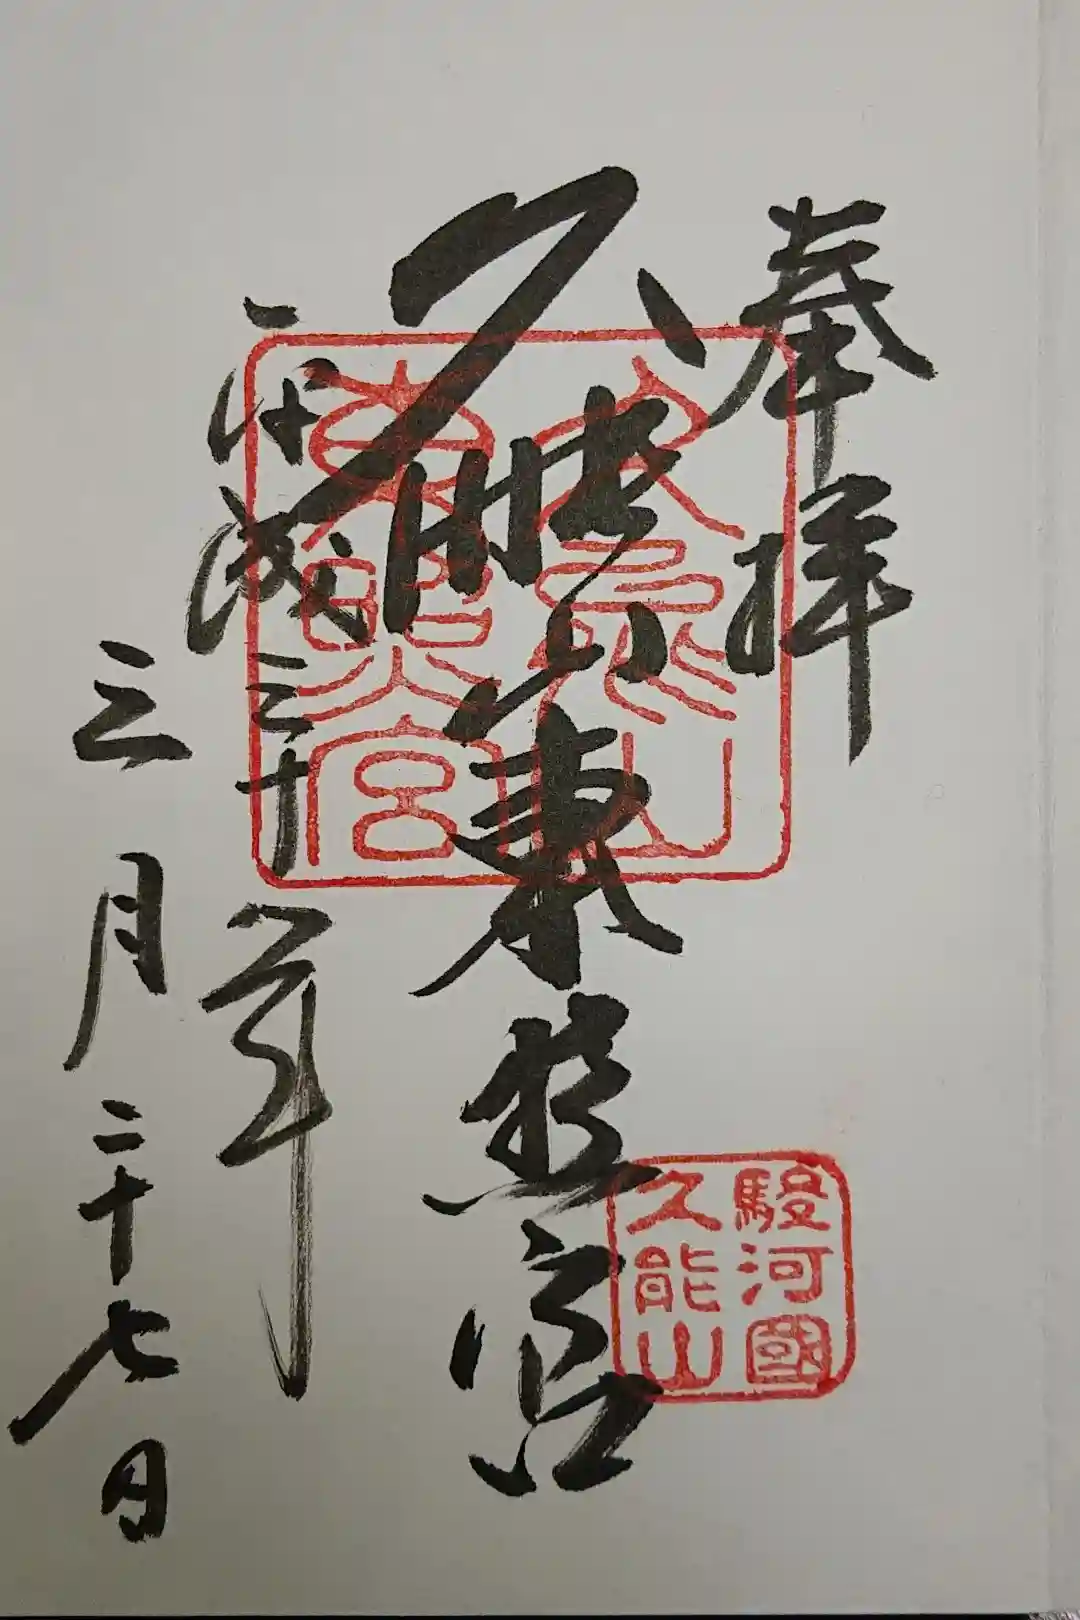 奉拝
久能山東照宮
平成三十年
三月二十七日
久能山
東照宮
駿河國
久能山